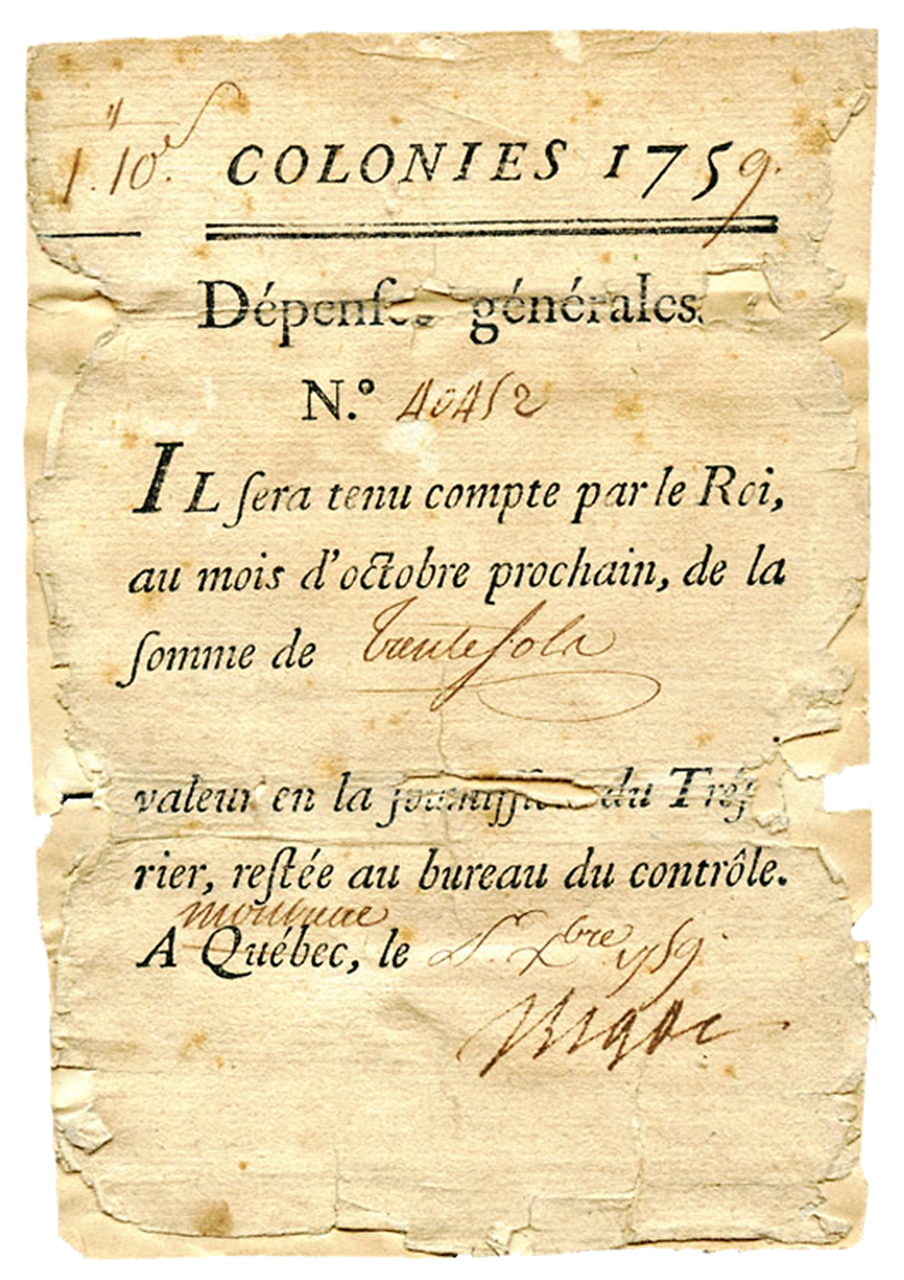 1. 10ˢ. COLONIES 1759.
Dépenſes générales.
N.º 40452
IL ſera tenu compte par le Roi,
au mois d'octobre prochain, de la
ſomme de trente ſols
valeur en la ſoumiſſion du Tréſ
rier, reſtée au bureau du contrôle.
A Québec, le Xbre 1759.
Bigot